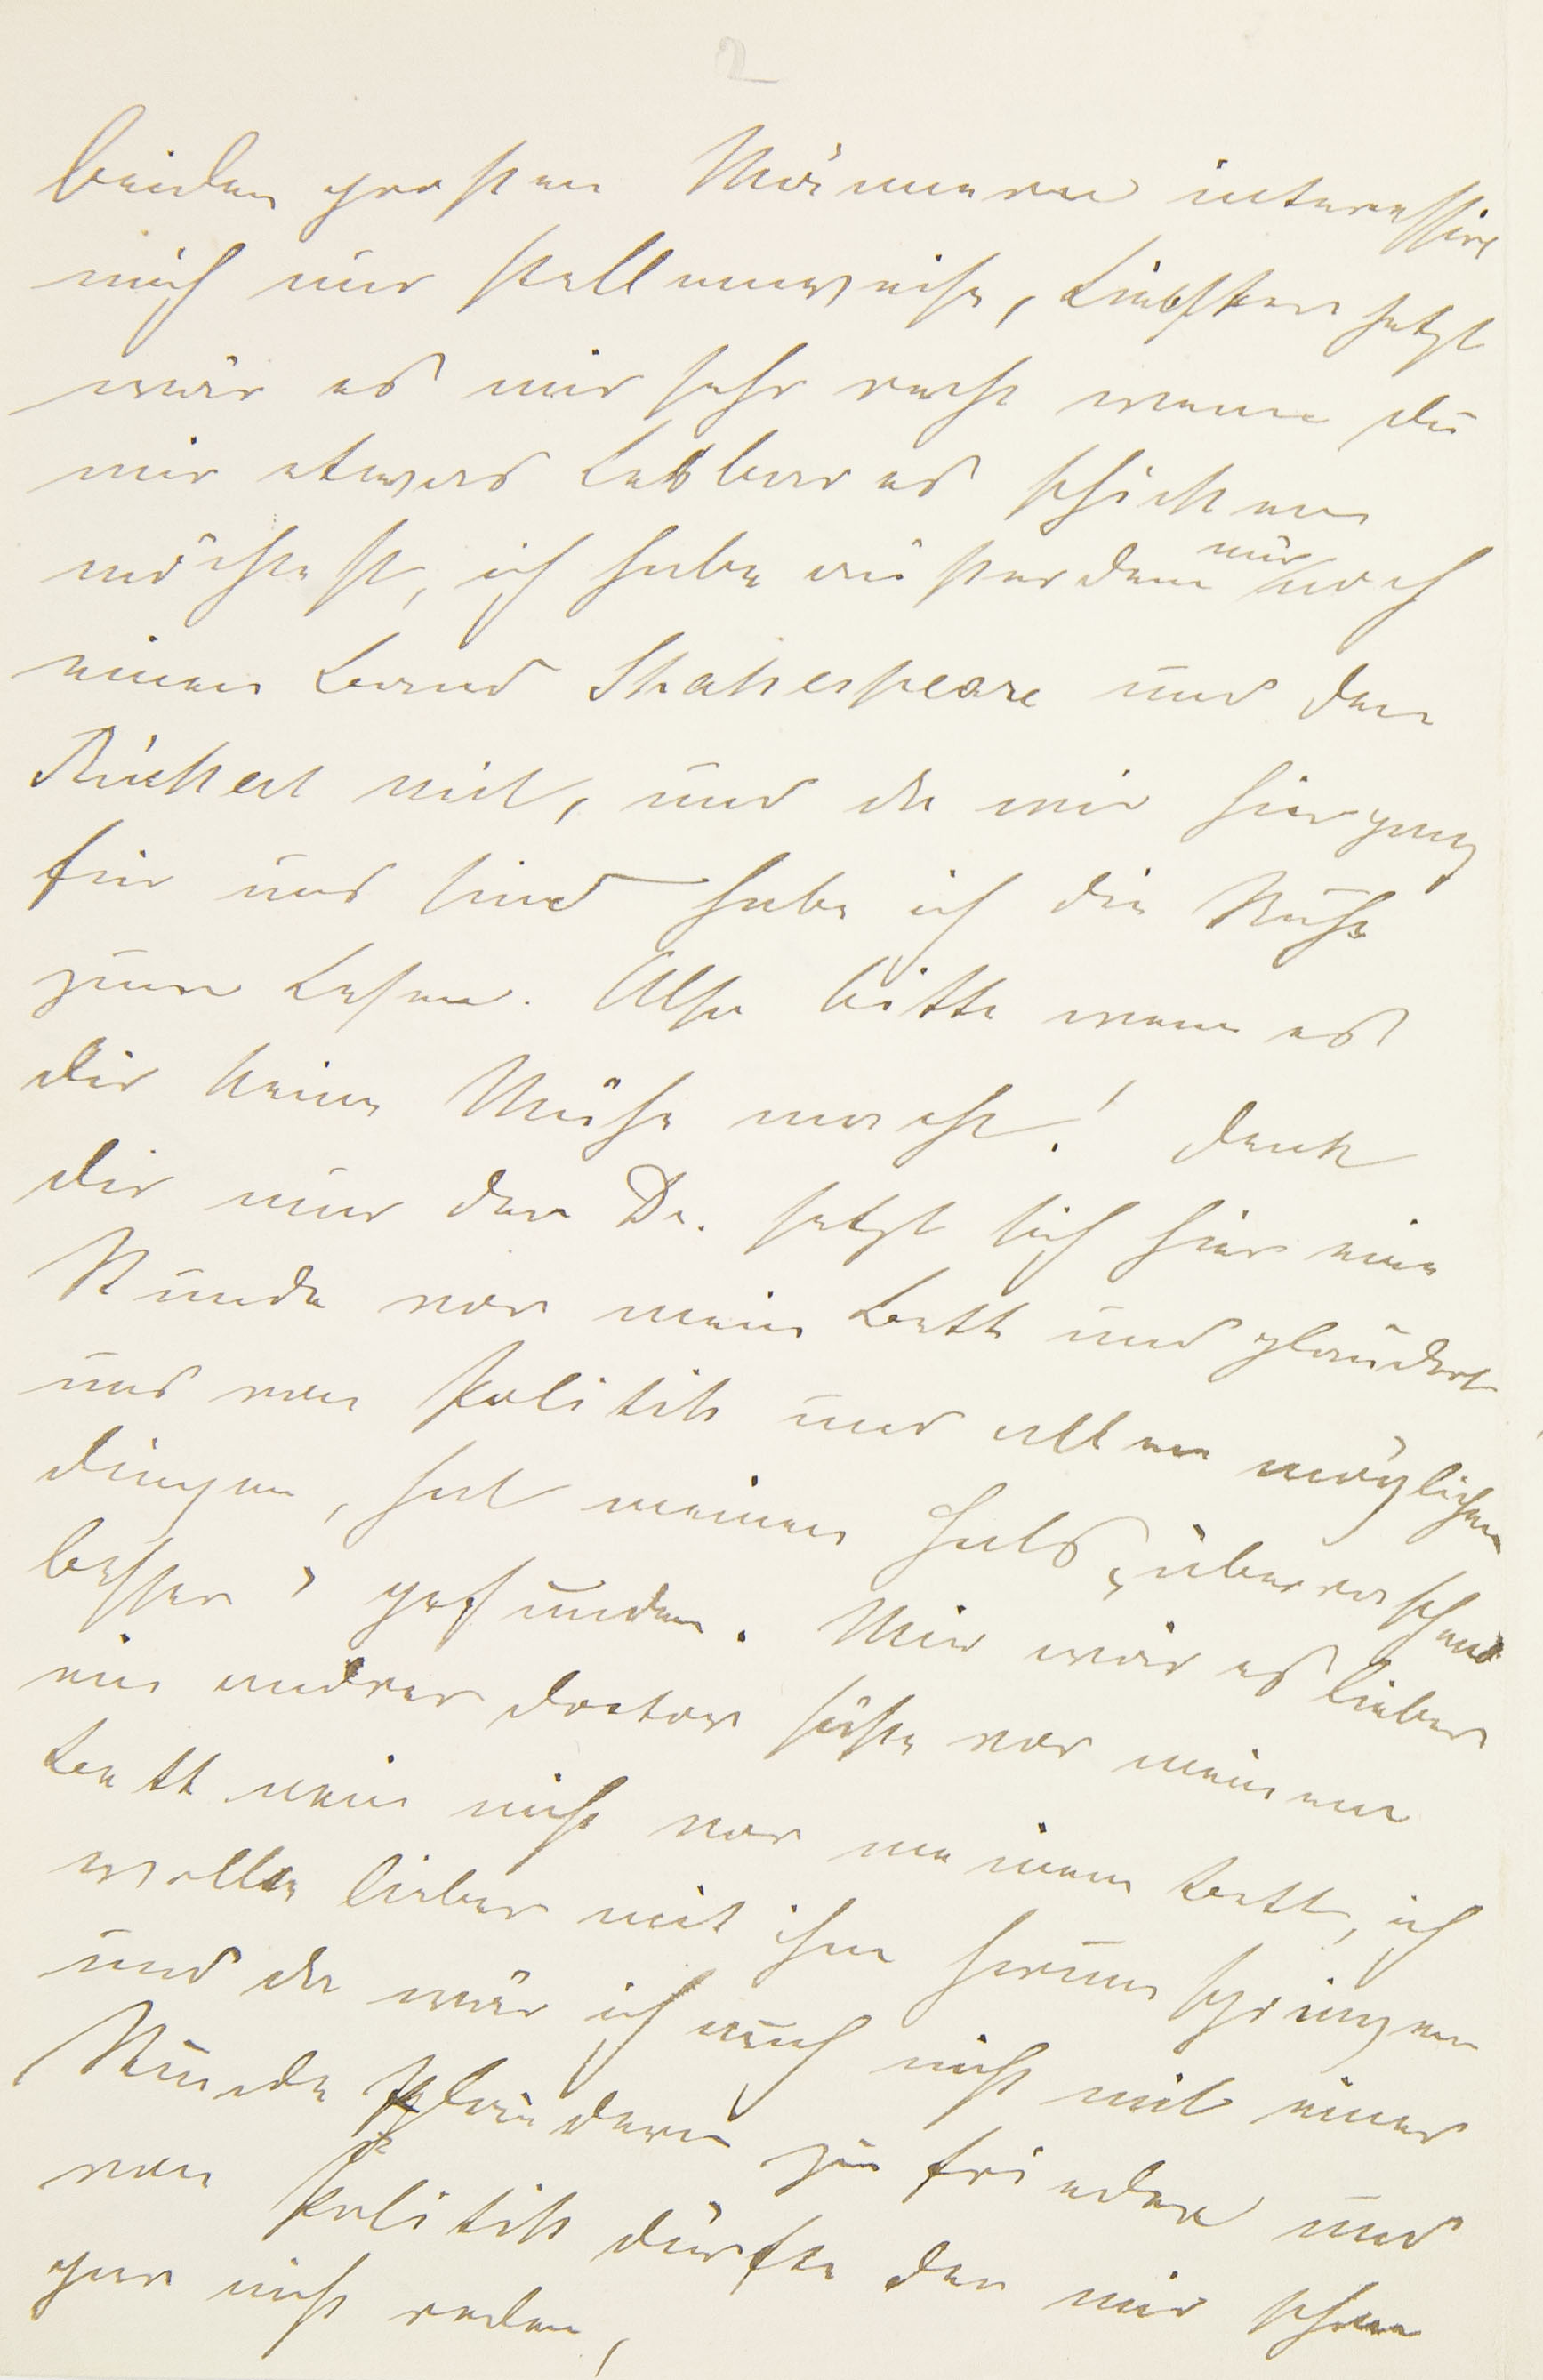 2
beiden großen Männern interessirt
mich nur stellenweise, Liebster jetzt
wär es mir sehr recht wenn du
mir etwas Lesbares schicken
möchtest, ich habe außerdem nur noch
einen Band Shakespeare und den
Rückert mit, und da wir hier ganz
für uns sind habe ich die Ruhe
zum Lesen. Also bitte wenn es
dir keine Mühe macht! denk
dir nur der Dr. setzt sich hier eine
Stunde vor mein Bett und plaudert
uns von Politik und allen möglichen
dingen, hat meinen Hals „überraschend
besser" gefunden. Mir wär es lieber
ein andrer doctor säße vor meinem
Bett nein nicht vor meinem Bett, ich
wollte lieber mit ihm herum springen
und da wär ich auch nicht mit einer
Stunde plaudern zu frieden und
von Politik dürfte der mir schon
gar nicht reden,